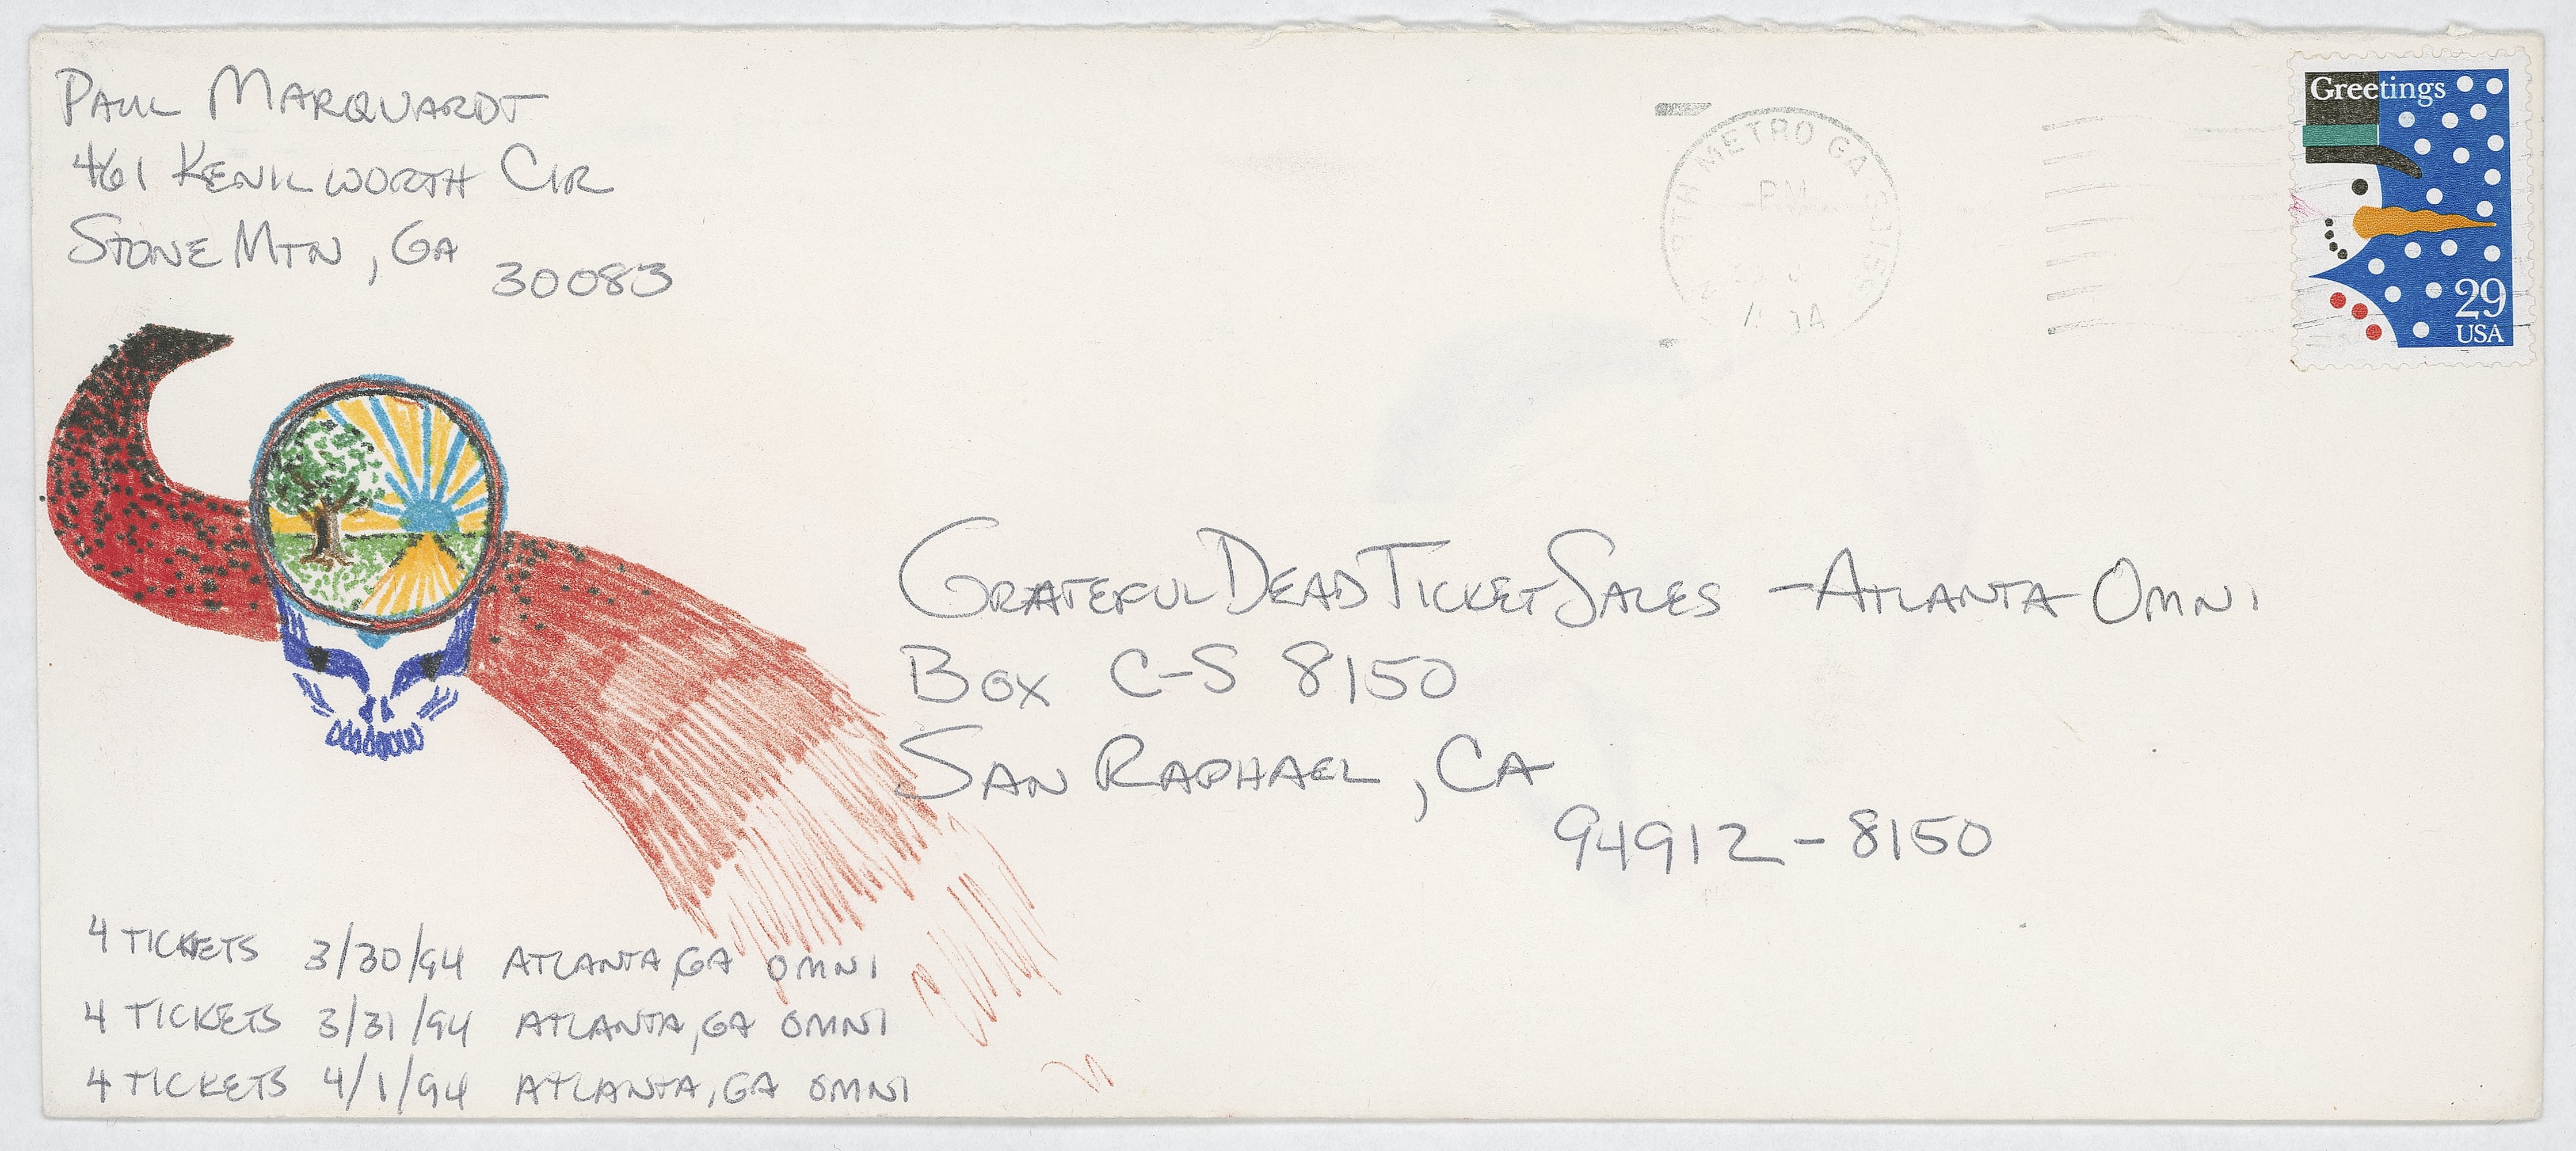 PAUL MARQUARDT
461 KENILWORTH CIR
STONE MTN, GA
30083
METRO GA
PM
Greetings
29
USA
GRATEFUL DEAD TICKET SALES - ATLANTA OMNI
BOX C-S 8150
SAN RAPHAEL, CA
94912-8150
4 TICKETS 3/30/94 ATLANTA, GA OMNI
4 TICKETS 3/31/94 ATLANTA, GA OMNI
4 TICKETS 4/1/94 ATLANTA, GA OMNI